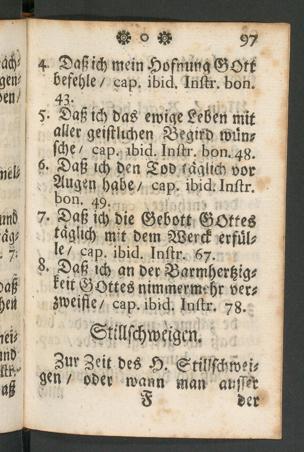 97
4. Daß ich mein Hofnung GOtt
befehle / cap. ibid. Instr. bon.
43.
5. Daß ich das ewige Leben mit
aller geistlichen Begird wün-
sche / cap. ibid. Instr. bon. 48.
6. Daß ich den Tod täglich vor
Augen habe / cap. ibid. Instr.
bon. 49.
7. Daß ich die Gebott GOttes
täglich mit dem Werck erfül-
le / cap. ibid. Instr. 67.
8. Daß ich an der Barmhertzig-
keit GOttes nimmermehr ver-
zweifle / cap. ibid. Instr. 78.
Stillschweigen.
Zur Zeit des H. Stillschwei-
gen / oder wann man ausser
F der